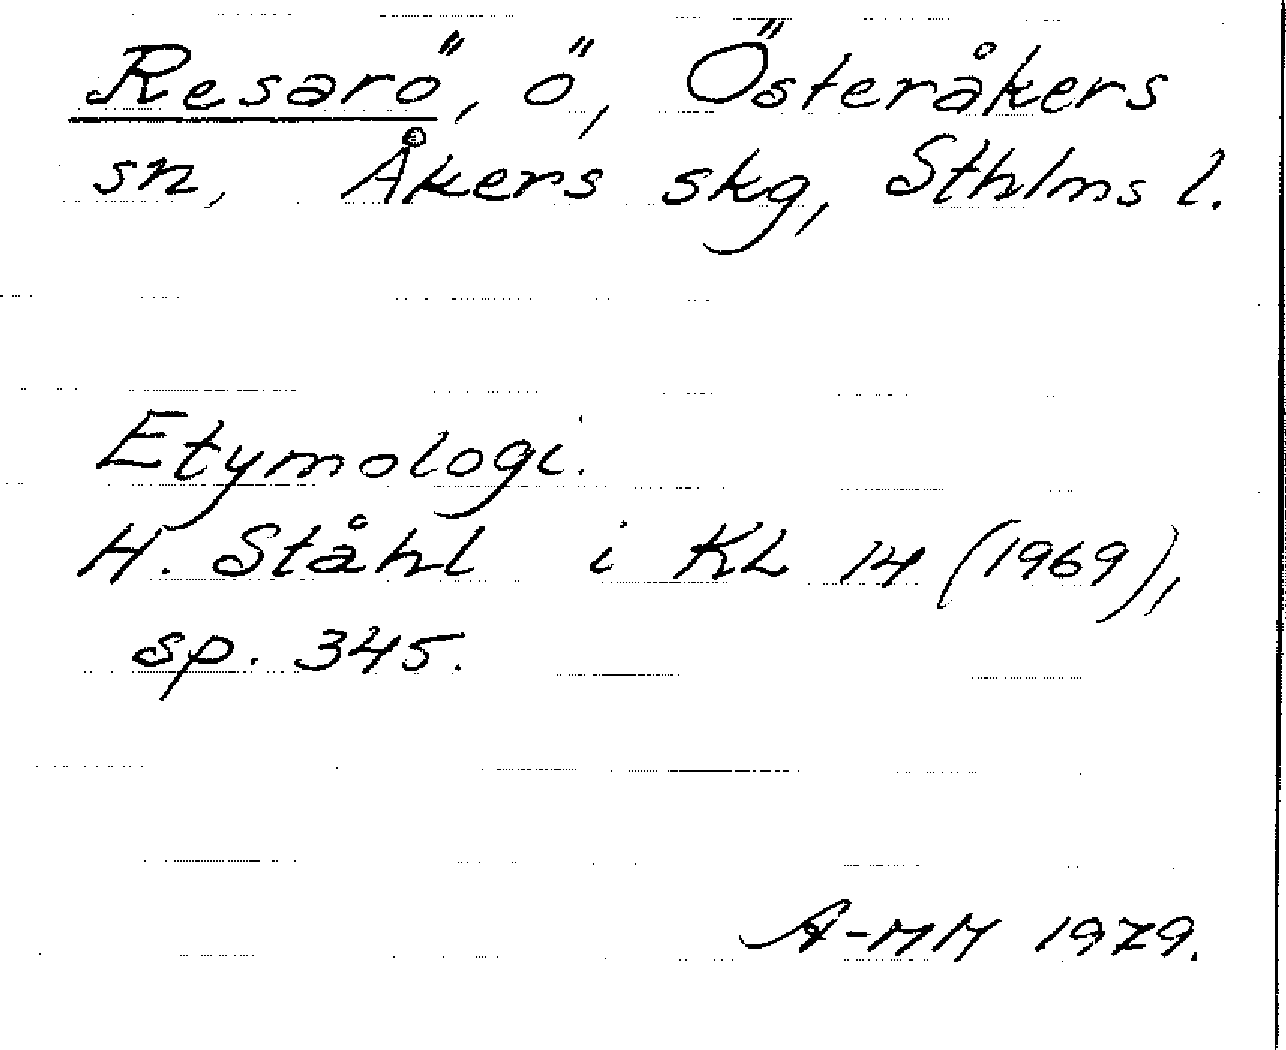 Resarö, ö, Österåkers
sn, Åkers skg, Sthlms l.
Etymologi.
H. Ståhl i KL 14 (1969),
sp. 345.
A-MM 1979.